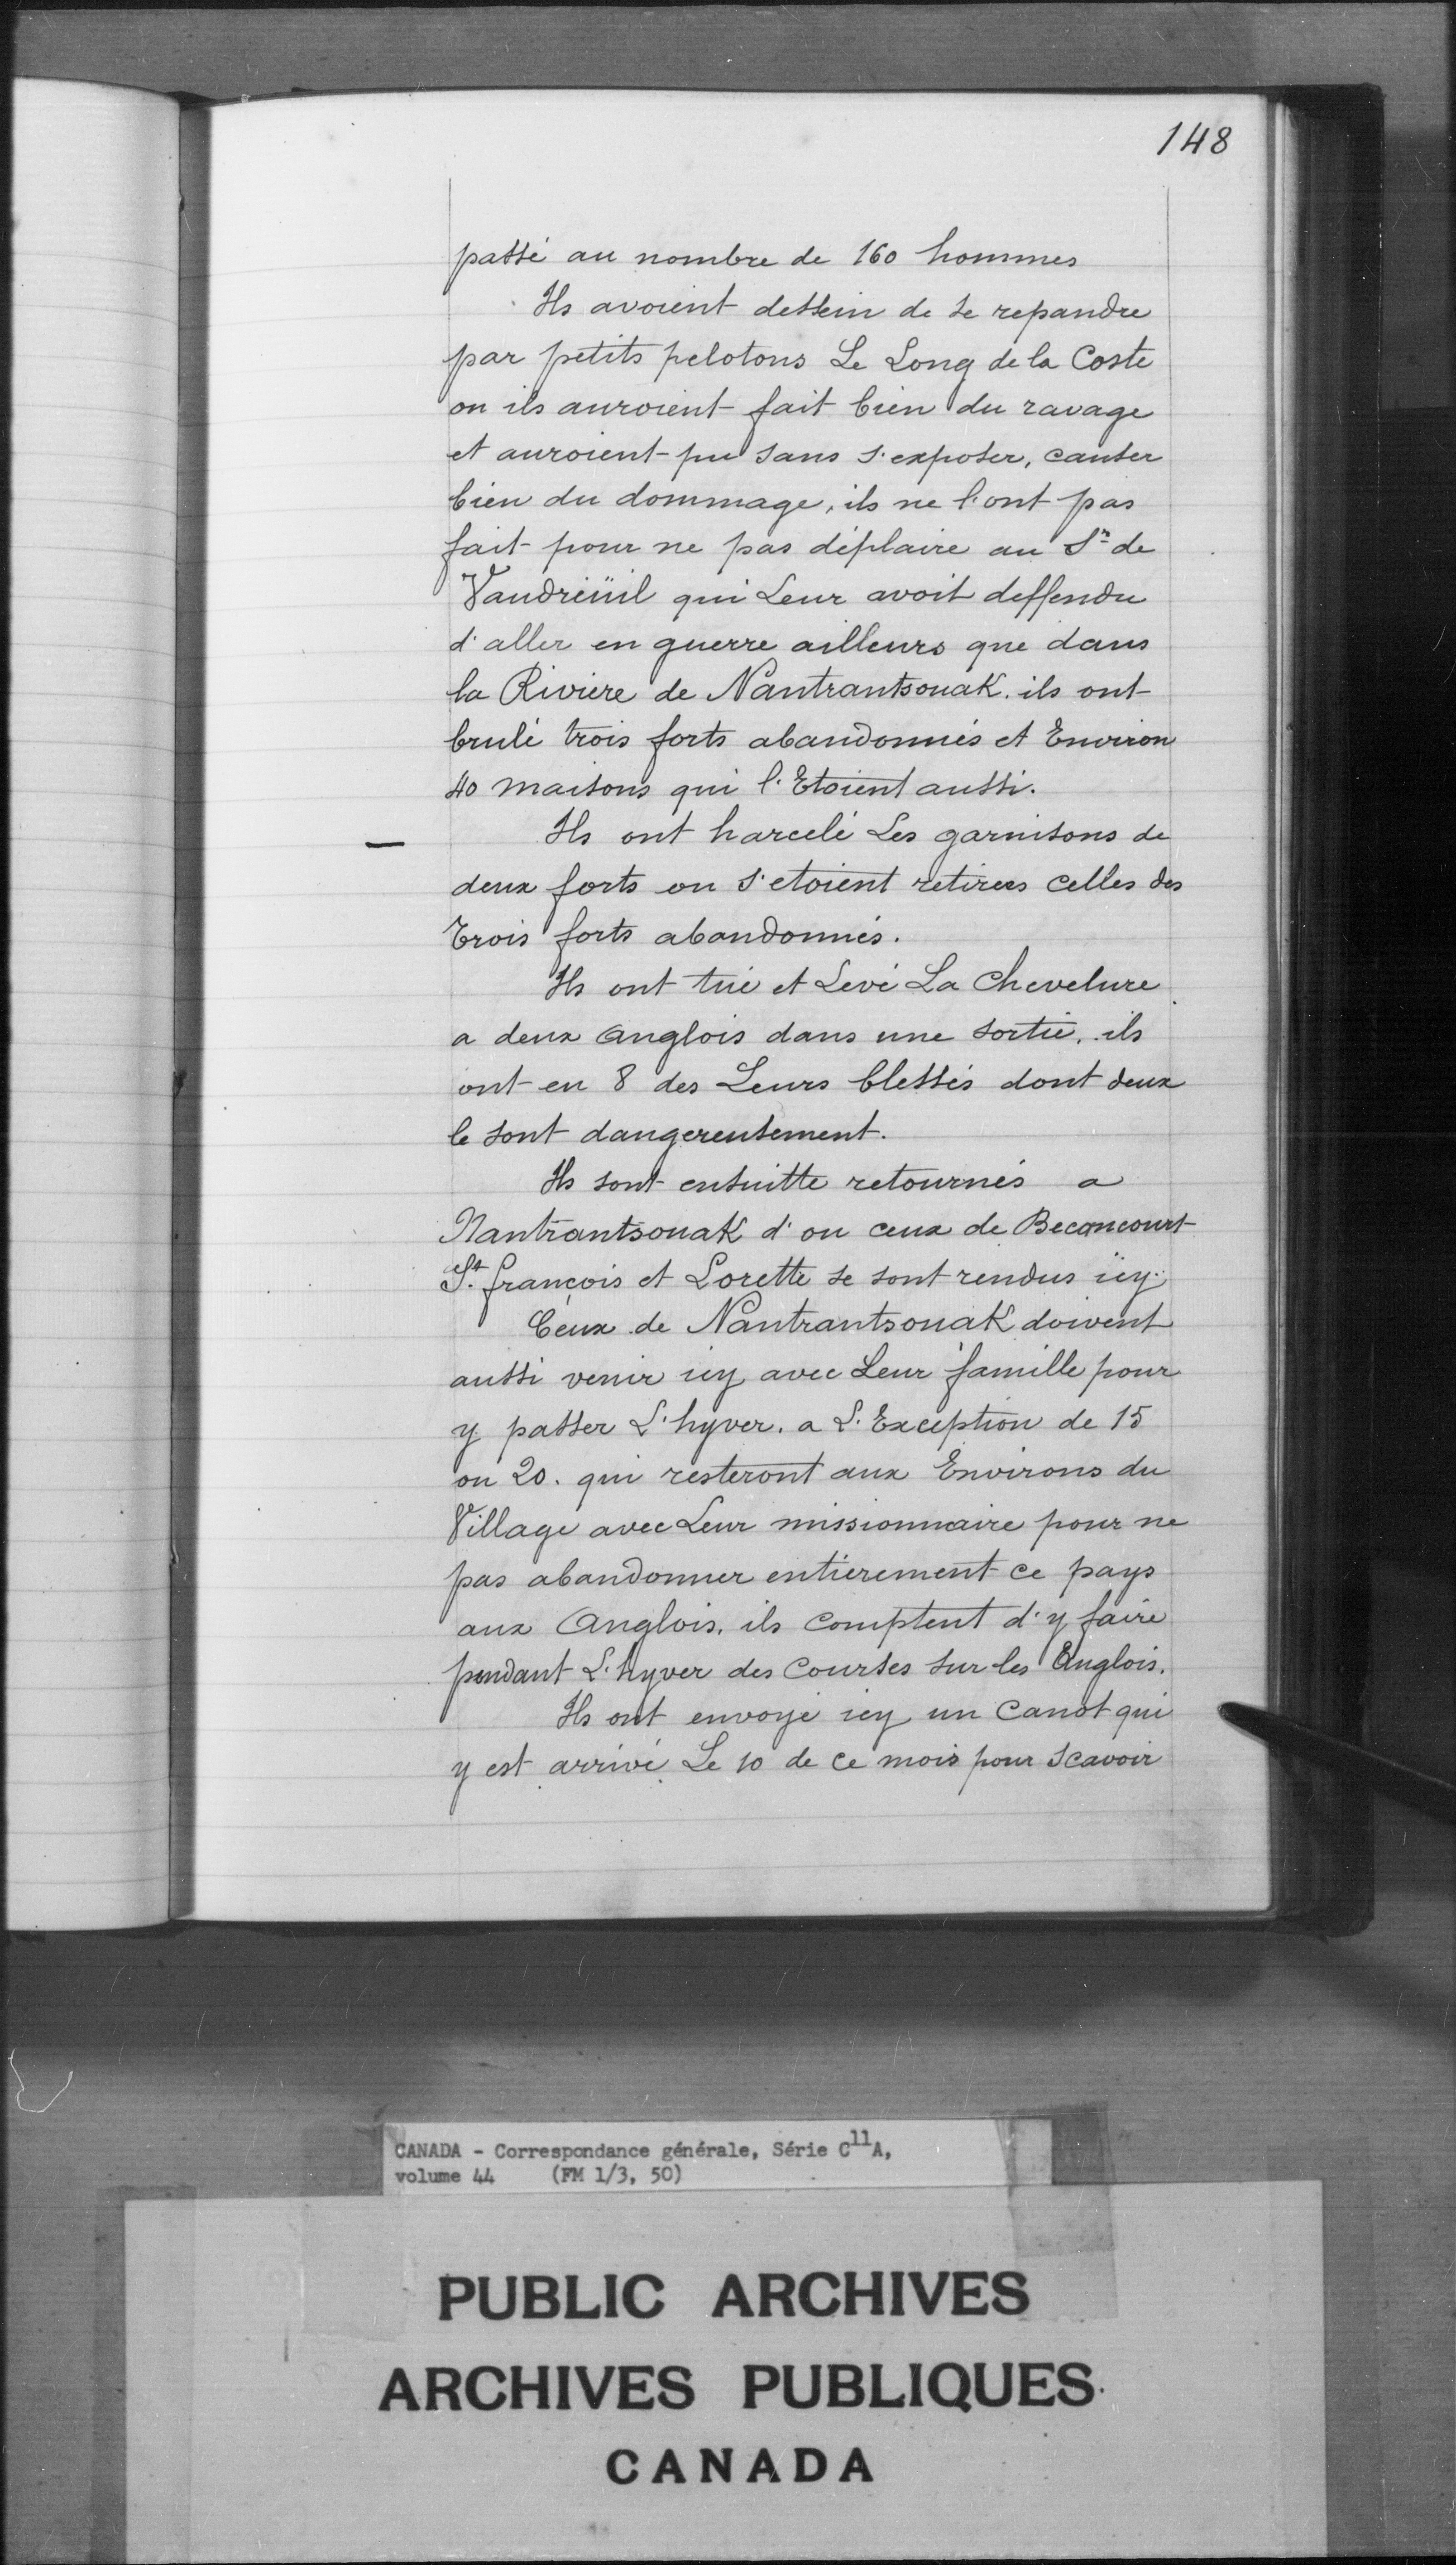 148
passé au nombre de 160 hommes
Ils avoient dessein de se repandre
par petits pelotons Le Long de la Coste
ou ils auroient fait bien du ravage
et auroient pu sans s'exposer, causer
bien du dommage, ils ne l'ont pas
fait pour ne pas déplaire au Sr de
Vaudreüil qui Leur avoit deffendu
d'aller en guerre ailleurs que dans
la Riviere de Nantrantsouak. ils ont
brulé trois forts abandonnés et Environ
40 maisons qui l'Etoient aussi.
— Ils ont harcelé Les garnisons de
deux forts ou s'etoient retirees celles des
trois forts abandonnés.
Ils ont tué et Levé La Chevelure
a deux anglois dans une sortie, ils
ont eu 8 des Leurs blessés dont deux
le sont dangereusement.
Ils sont ensuitte retournés a
Nantrantsouak d'ou ceux de Becancourt
St. françois et Lorette se sont rendus icy.
Ceux de Nantrantsouak doivent
aussi venir icy avec Leur famille pour
y passer L'hyver. a L'Exception de 15
ou 20. qui resteront aux Environs du
Village avec Leur missionnaire pour ne
pas abandonner entierement ce pays
aux Anglois. ils comptent d'y faire
pendant L'hyver des Courses sur les Anglois.
Ils ont envoyé icy un Canot qui
y est arrivé Le 10 de ce mois pour scavoir
CANADA - Correspondance générale, Série C11A,
volume 44 (FM 1/3, 50)
PUBLIC ARCHIVES
ARCHIVES PUBLIQUES
CANADA